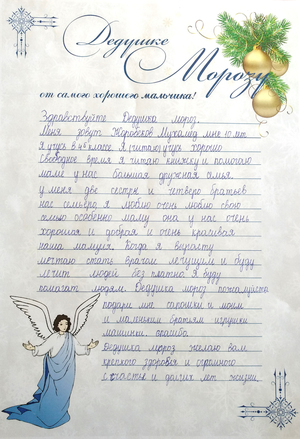 Дедушке
Морозу
от самого хорошего мальчика!
Здравствуйте Дедушка мороз.
Меня зовут Мухамад мне 10 лет
Я учусь в 4 классе. Я считаю учусь хорошо
Свободное время я читаю книжку и помогаю
маме у нас большая дружная семья.
у меня две сестры и четверо братьев
нас семьеро я люблю очень люблю свою
семью особенно маму она у нас очень
хорошая и добрая и очень красивая
наша мамуля. Когда я вырасту
мечтаю стать врачом лечущим и буду
лечит людей бес платно Я буду
помагат людям. Дедушка мороз пожалуйста
подари мне и моим
и маленьким братьям игрушки
машинки. спасибо
Дедушка мороз желаю вам
крепкого здоровья и огромного
счастье и долгих лет жизни.